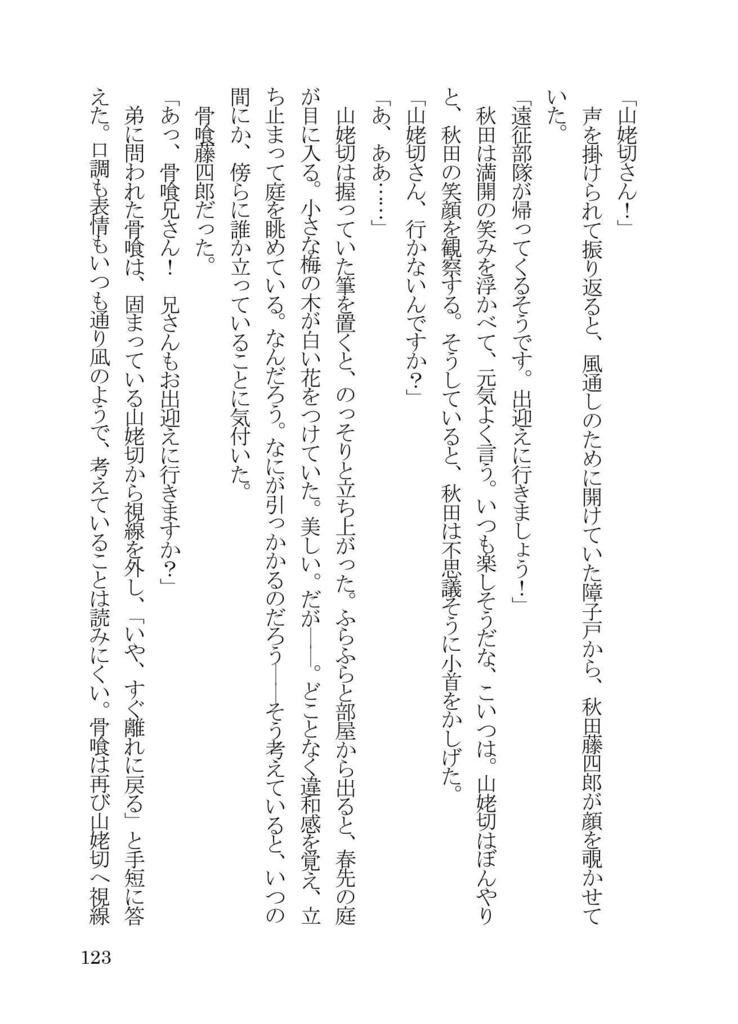 「山姥切さん！」
　声を掛けられて振り返ると、風通しのために開けていた障子戸から、秋田藤四郎が顔を覗かせて
いた。
「遠征部隊が帰ってくるそうです。出迎えに行きましょう！」
　秋田は満開の笑みを浮かべて、元気よく言う。いつも楽しそうだな、こいつは。山姥切はぼんやり
と、秋田の笑顔を観察する。そうしていると、秋田は不思議そうに小首をかしげた。
「山姥切さん、行かないんですか？」
「あ、ああ……」
　山姥切は握っていた筆を置くと、のっそりと立ち上がった。ふらふらと部屋から出ると、春先の庭
が目に入る。小さな梅の木が白い花をつけていた。美しい。だが――。どことなく違和感を覚え、立
ち止まって庭を眺めている。なんだろう。なにが引っかかるのだろう――そう考えていると、いつの
間にか、傍らに誰か立っていることに気付いた。
　骨喰藤四郎だった。
「あっ、骨喰兄さん！　兄さんもお出迎えに行きますか？」
　弟に問われた骨喰は、固まっている山姥切から視線を外し、「いや、すぐ離れに戻る」と手短に答
えた。口調も表情もいつも通り凪のようで、考えていることは読みにくい。骨喰は再び山姥切へ視線
123